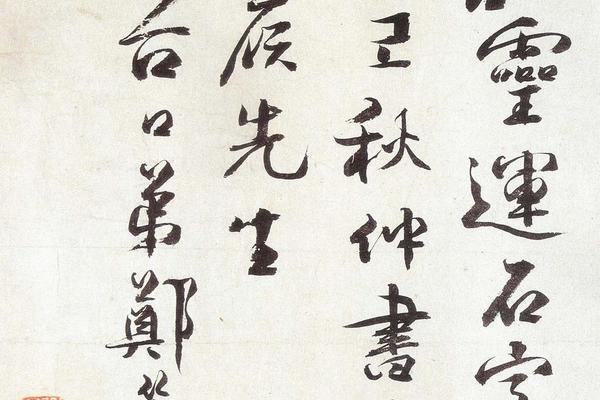 靈運石室
秋仲書
先生
台口弟鄭